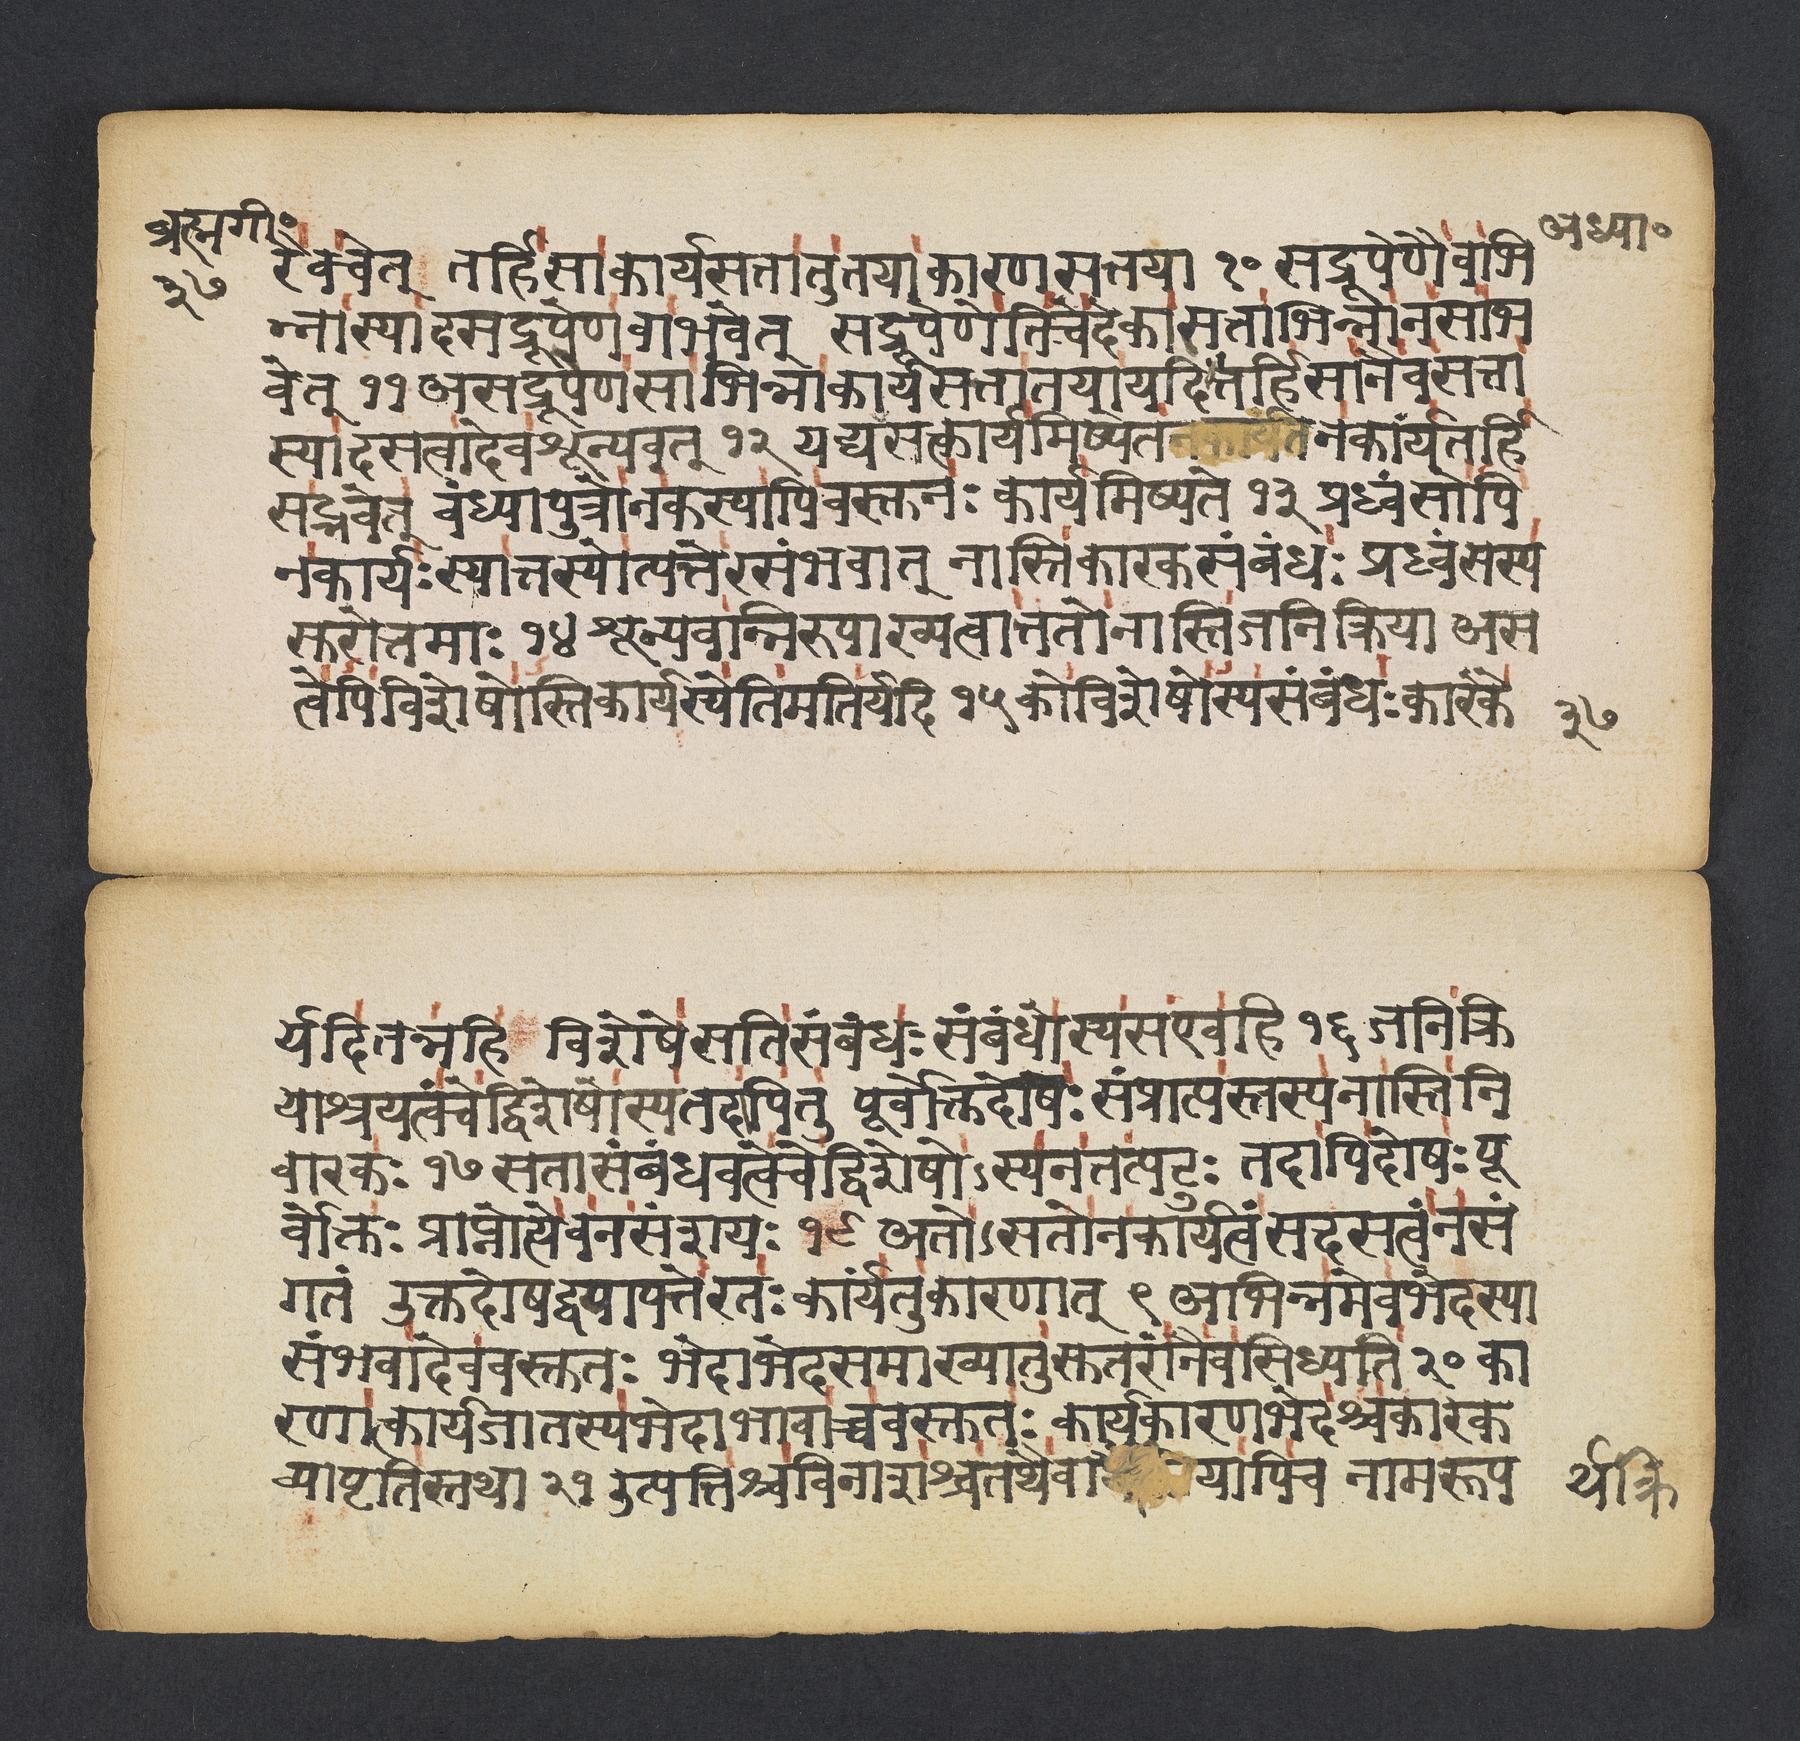 ब्रह्मगी॰
३७
अध्या॰
रेकवेत् तर्हिसाकार्यसत्तातुतयाकारणसत्तया १० सद्रूपेणैवभि
न्नास्यादसद्रूपेणवाभवेत् सद्रूपेणेतिचेदेकासत्ताभिन्नानसाभ
वेत् ११ असद्रूपेणसाभिन्नाकार्यसत्तातयायदि तर्हिसानैवसत्ता
स्यादसत्वादेवशून्यवत् १२ यद्यसत्कार्यमिष्यत नकार्यंतर्हि
सद्भवेत् वंध्यापुत्रोनकस्यापिवस्तुनः कार्यमिष्यते १३ प्रध्वंसोपि
नकार्यः स्यात्तस्योत्पत्तेरसंभवात् नास्तिकारकसंबंधः प्रध्वंसस्य
सुरोत्तमाः १४ शून्यवान्निरुपाख्यत्वात्ततोनास्तिजनिक्रिया अस
त्वेपिविशेषोस्तिकार्यस्येतिमतिर्यदि १५ कोविशेषोस्यसंबंधः कारकै
३७
र्यदितन्नहि विशेषेसतिसंबंधः संबंधोस्यसएवहि १६ जनिक्रि
याश्रयत्वंचेद्विशेषोस्यतदापितु पूर्वोक्तदोषः संप्राप्तस्तस्यनास्तिनि
वारकः १७ सतासंबंधवत्वंचेद्विशेषोऽस्यनतत्पटुः तदापिदोषः पू
र्वोक्तः प्राप्नोत्येवनसंशयः १८ अतोऽसतोनकार्यत्वंसदसत्वंनसं
गतं उक्तदोषद्वयापत्तेरतः कार्यंतुकारणात् ९ अभिन्नमेवभेदस्या
संभवादेववस्तुतः भेदाभेदसमाख्यातुसुतरांनैवसिध्यति २० का
रणात्कार्यजातस्यभेदाभावाच्चवस्तुतः कार्यकारणभेदश्चकारक
व्यापृतिस्तथा २१ उत्पत्तिश्चविनाशश्चतथैवा यापिच नामरूप
र्थक्रि